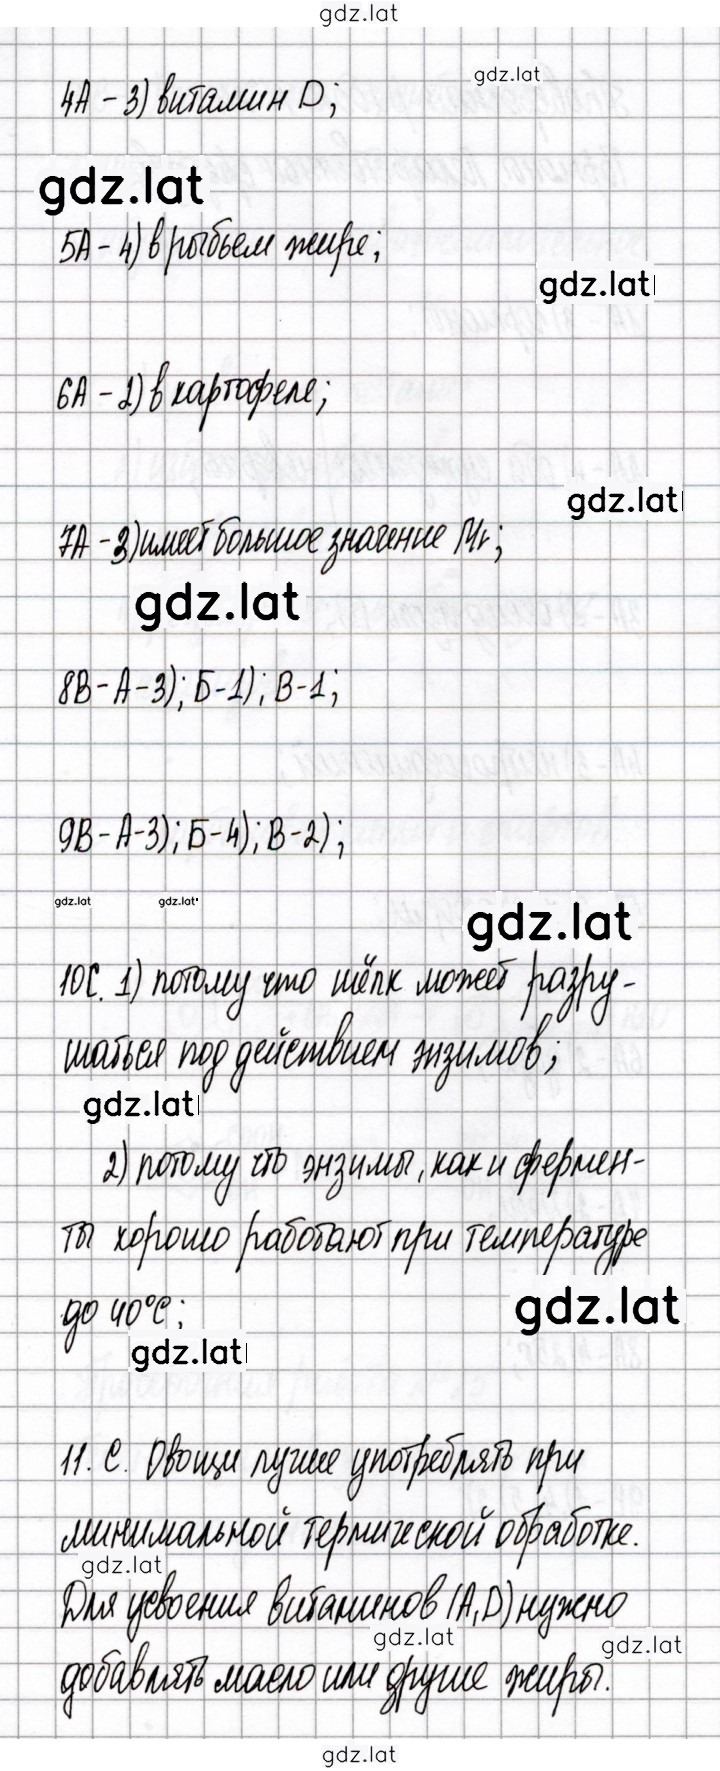 gdz.lat
gdz.lat
4А - 3) витамин D;
gdz.lat
5А - 4) в рыбьем жире;
gdz.lat
6А - 2) в картофеле;
gdz.lat
7А - 3) имеет большое значение Mr;
gdz.lat
8В - А - 3); Б - 1); В - 1;
9В - А - 3); Б - 4); В - 2);
gdz.lat gdz.lat
gdz.lat
10С. 1) потому что шёлк может разру-
шаться под действием энзимов;
gdz.lat
2) потому что энзимы, как и фермен-
ты хорошо работают при температуре
gdz.lat
до 40°С;
gdz.lat
11. С. Овощи лучше употреблять при
минимальной термической обработке.
gdz.lat
Для усвоения витаминов (А, D) нужно
gdz.lat
gdz.lat
добавлять масло или другие жиры.
gdz.lat